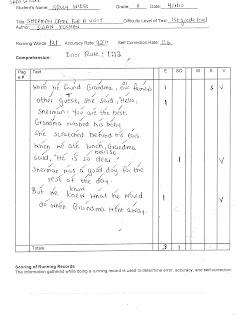 Student's Name Grade Date: 4/1/10
Title: SHERMAN CAME FOR A VISIT Difficulty Level of Text: 1st grade level
Author:
Running Words: 121 Accuracy Rate: 92% Self Correction Rate: 1:6
Error Rate: 1:13
Comprehension:
Page # Text E SC M S V
When he found Grandma, our family's S V
other guest, she said, "Hello,
Sherman! You are the best.
Grandma rubbed his belly
She scratched behind his ears
When we ate lunch, Grandma
said, "He is so dear."
Sherman was a good dog for the
rest of the day.
But he knew what he would
do when Grandma went away.
Totals 3 1
Scoring of Running Records
The information gathered while doing a running record is used to determine error, accuracy, and self-correction